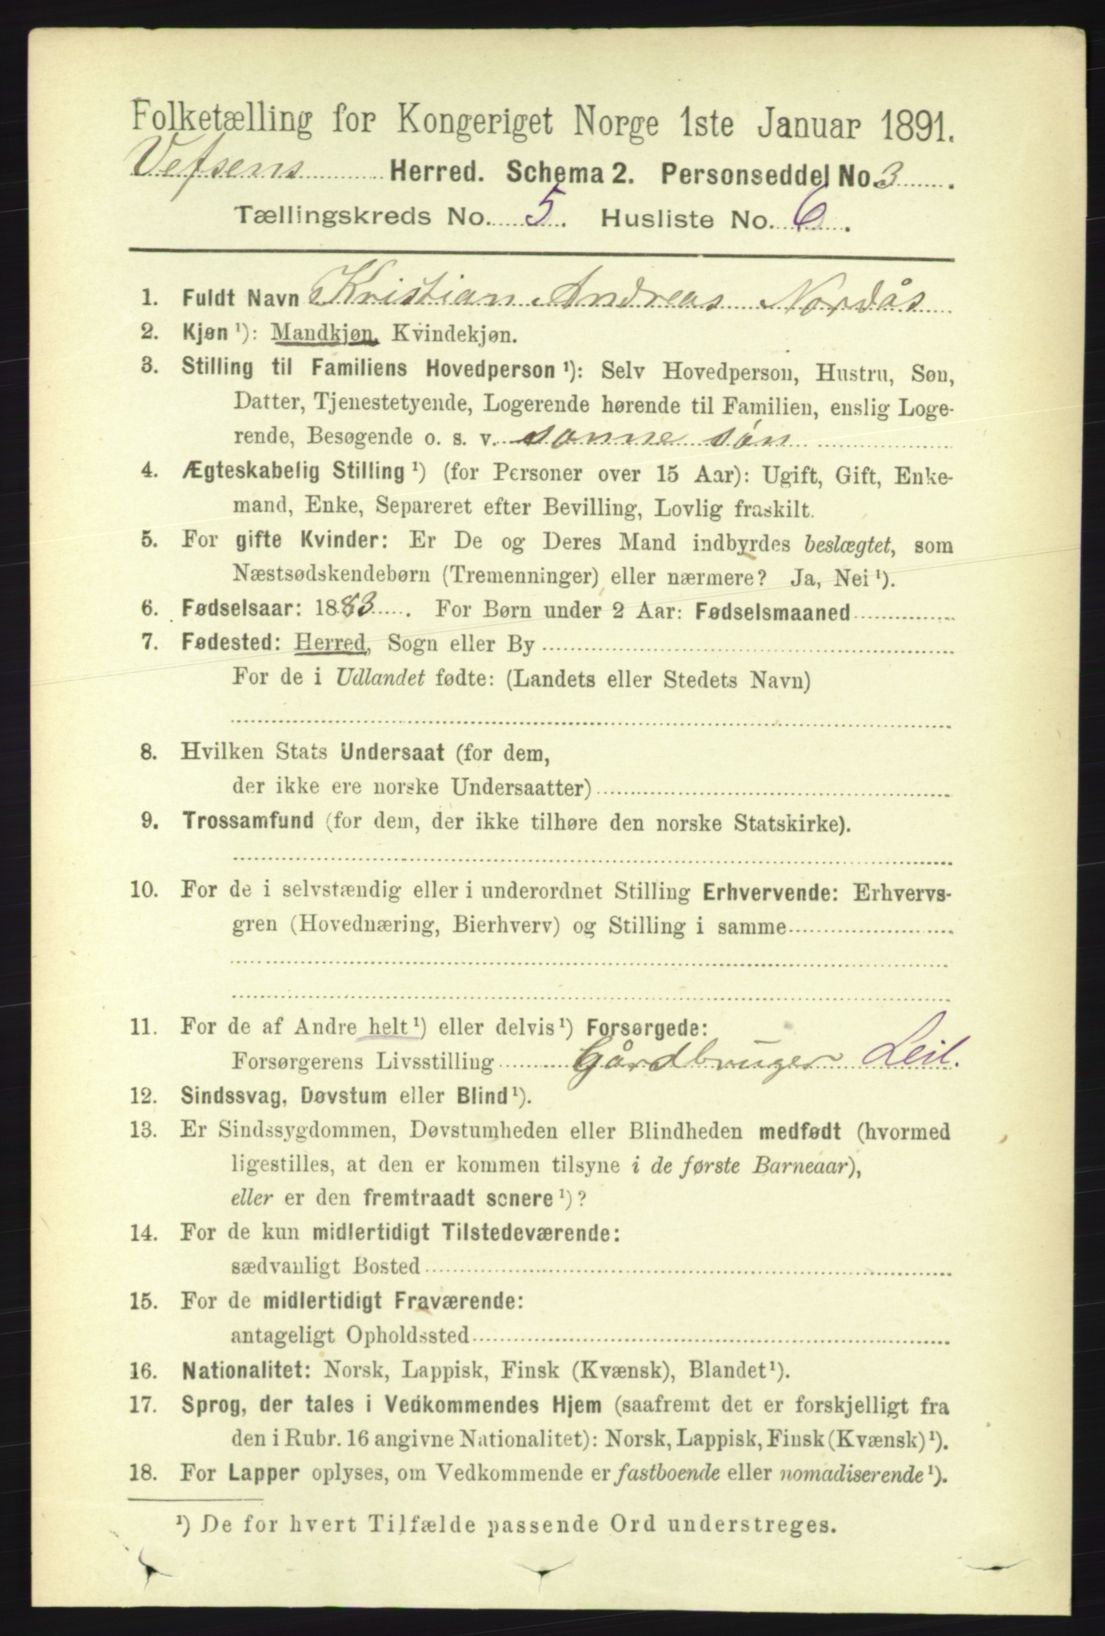 Folketælling for Kongeriget Norge 1ste Januar 1891.
Vefsens Herred. Schema 2. Personseddel No. 3.
Tællingskreds No. 5. Husliste No. 6.
1. Fuldt Navn Kristian Andreas Nordås
2. Kjøn ¹): Mandkjøn, Kvindekjøn.
3. Stilling til Familiens Hovedperson ¹): Selv Hovedperson, Hustru, Søn,
Datter, Tjenestetyende, Logerende hørende til Familien, enslig Loge-
rende, Besøgende o. s. v. sønne søn
4. Ægteskabelig Stilling ¹) (for Personer over 15 Aar): Ugift, Gift, Enke-
mand, Enke, Separeret efter Bevilling, Lovlig fraskilt.
5. For gifte Kvinder: Er De og Deres Mand indbyrdes beslægtet, som
Næstsødskendebørn (Tremenninger) eller nærmere? Ja, Nei ¹).
6. Fødselsaar: 1883. For Børn under 2 Aar: Fødselsmaaned
7. Fødested: Herred, Sogn eller By
For de i Udlandet fødte: (Landets eller Stedets Navn)
8. Hvilken Stats Undersaat (for dem,
der ikke ere norske Undersaatter)
9. Trossamfund (for dem, der ikke tilhøre den norske Statskirke).
10. For de i selvstændig eller i underordnet Stilling Erhvervende: Erhvervs-
gren (Hovednæring, Bierhverv) og Stilling i samme
11. For de af Andre helt ¹) eller delvis ¹) Forsørgede:
Forsørgerens Livsstilling Gårdbruger Leil.
12. Sindssvag, Døvstum eller Blind ¹).
13. Er Sindssygdommen, Døvstumheden eller Blindheden medfødt (hvormed
ligestilles, at den er kommen tilsyne i de første Barneaar),
eller er den fremtraadt senere ¹)?
14. For de kun midlertidigt Tilstedeværende:
sædvanligt Bosted
15. For de midlertidigt Fraværende:
antageligt Opholdssted
16. Nationalitet: Norsk, Lappisk, Finsk (Kvænsk), Blandet ¹).
17. Sprog, der tales i Vedkommendes Hjem (saafremt det er forskjelligt fra
den i Rubr. 16 angivne Nationalitet): Norsk, Lappisk, Finsk (Kvænsk) ¹).
18. For Lapper oplyses, om Vedkommende er fastboende eller nomadiserende ¹).
¹) De for hvert Tilfælde passende Ord understreges.